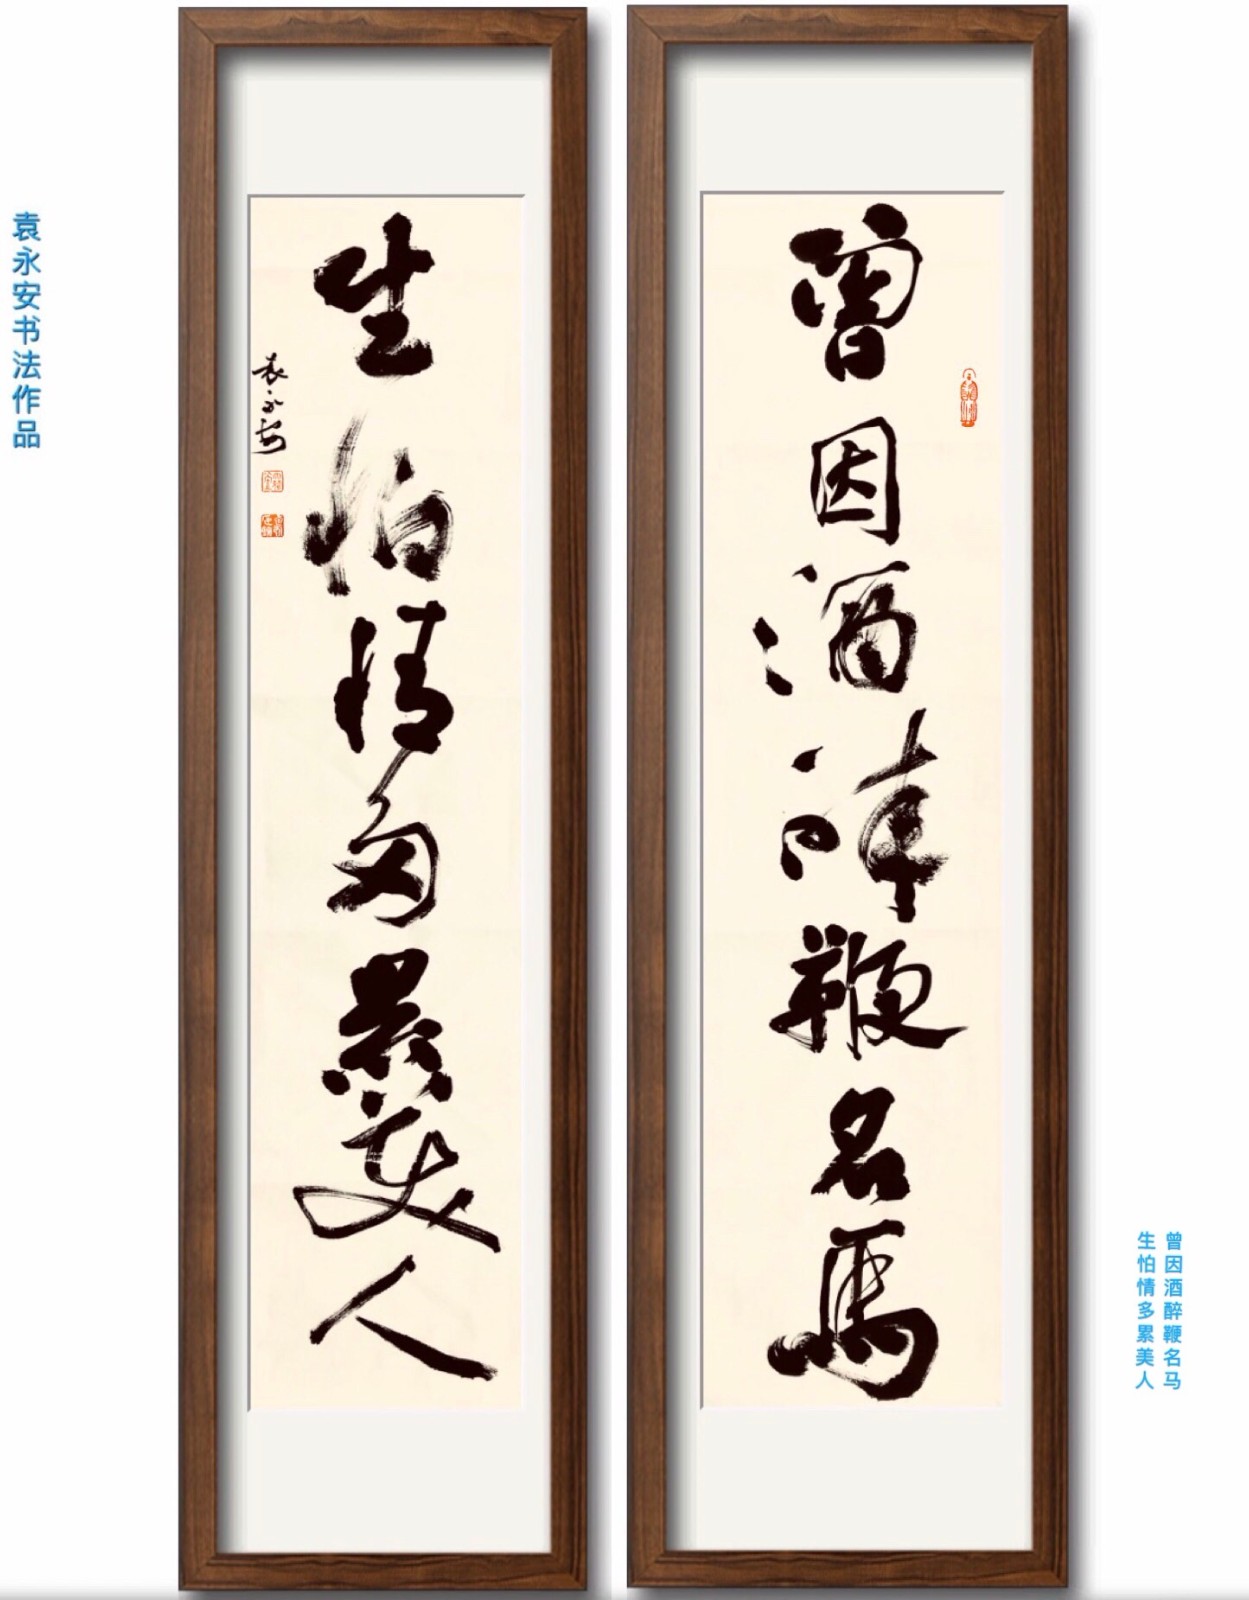 曾因酒醉鞭名馬
生怕情多累美人
袁永安
袁永安书法作品
曾因酒醉鞭名马
生怕情多累美人